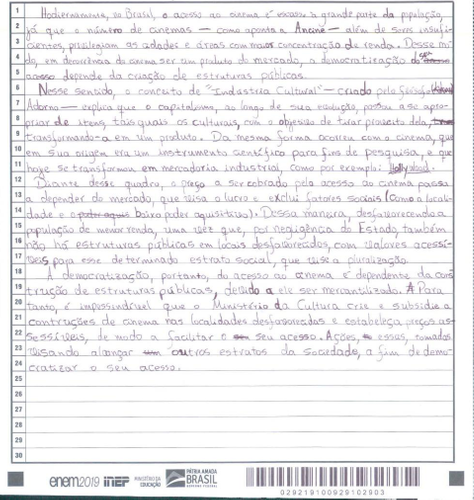 1 Hodiernamente, no Brasil, o acesso ao cinema é escasso à grande parte da população,
2 já que o número de cinemas — como aponta a Ancine — além de serem insufi-
3 cientes, privilegiam as cidades e áreas com maior concentração de renda. Desse mo-
4 do, em decorrência do cinema ser um produto do mercado, a democratização do seu
5 acesso depende da criação de estruturas públicas.
6 Nesse sentido, o conceito de "Indústria Cultural" — criado pelo filósofo
7 Adorno — explica que o capitalismo, ao longo de sua evolução, passou a se apro-
8 priar de itens, tais quais os culturais, com o objetivo de tirar proveito dela,
9 transformando-a em um produto. Da mesma forma ocorreu com o cinema, que
10 em sua origem era um instrumento científico para fins de pesquisa, e que
11 hoje se transformou em mercadoria industrial, como por exemplo: Hollywood.
12 Diante desse quadro, o preço a ser cobrado pelo acesso ao cinema passa
13 a depender do mercado, que visa o lucro e exclui fatores sociais (como a locali-
14 dade e o baixo poder aquisitivo). Dessa maneira, desfavorecendo a
15 população de menor renda, uma vez que, por negligência do Estado, também
16 não há estruturas públicas em locais desfavorecidos, com valores acessí-
17 veis para esse determinado estrato social, que vise a pluralização.
18 A democratização, portanto, do acesso ao cinema é dependente da cons-
19 trução de estruturas públicas, devido a ele ser mercantilizado. Para
20 tanto, é imprescindível que o Ministério da Cultura crie e subsidie a
21 contruções de cinema nas localidades desfavorecidas e estabeleça preços a-
22 sessíveis, de modo a facilitar o seu acesso. Ações, essas, tomadas
23 visando alcançar outros estratos da sociedade, a fim de demo-
24 cratizar o seu acesso.
25
26
27
28
29
30
enem2019 inep MINISTÉRIO DA EDUCAÇÃO PÁTRIA AMADA BRASIL GOVERNO FEDERAL
029219100928102903